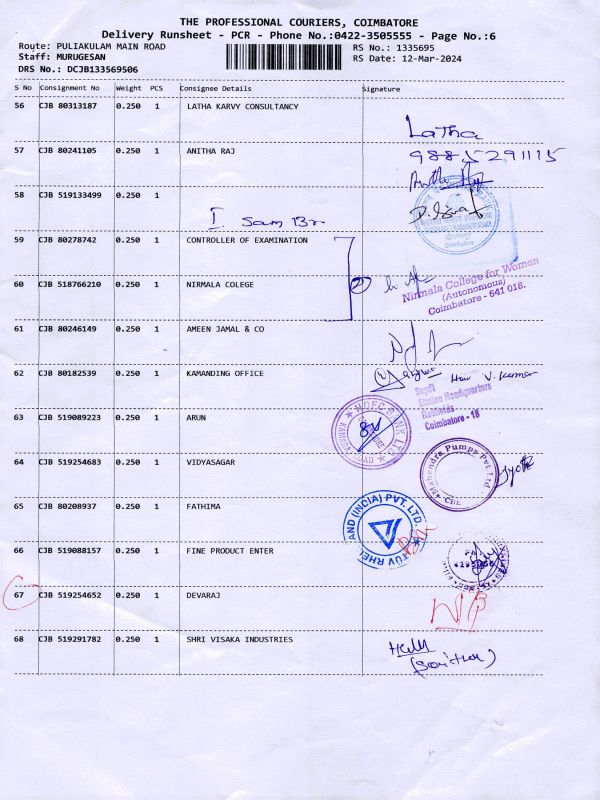 THE PROFESSIONAL COURIERS, COIMBATORE
Delivery Runsheet - PCR - Phone No.:0422-3505555 - Page No.:6
Route: PULIAKULAM MAIN ROAD
RS No.: 1335695
Staff: MURUGESAN
RS Date: 12-Mar-2024
DRS No.: DCJB133569506
S No Consignment No Weight PCS Consignee Details Signature
56 CJB 80313187 0.250 1 LATHA KARVY CONSULTANCY
Latha
57 CJB 80241105 0.250 1 ANITHA RAJ
9885291115
58 CJB 519133499 0.250 1
Coimbatore
59 CJB 80278742 0.250 1 CONTROLLER OF EXAMINATION
60 CJB 518766210 0.250 1 NIRMALA COLEGE
2
Nirmala College for Women
(Autonomous)
Coimbatore - 641 018.
61 CJB 80246149 0.250 1 AMEEN JAMAL & CO
62 CJB 80182539 0.250 1 KAMANDING OFFICE
V. Kumar
Supdt
Station Headquarters
Redfields
Coimbatore - 18
63 CJB 519089223 0.250 1 ARUN
HDFC BANK LTD
64 CJB 519254683 0.250 1 VIDYASAGAR
Mahendra Pumps Pvt. Ltd
CBE
65 CJB 80208937 0.250 1 FATHIMA
TÜV RHEINLAND (INDIA) PVT. LTD.
66 CJB 519088157 0.250 1 FINE PRODUCT ENTER
67 CJB 519254652 0.250 1 DEVARAJ
68 CJB 519291782 0.250 1 SHRI VISAKA INDUSTRIES